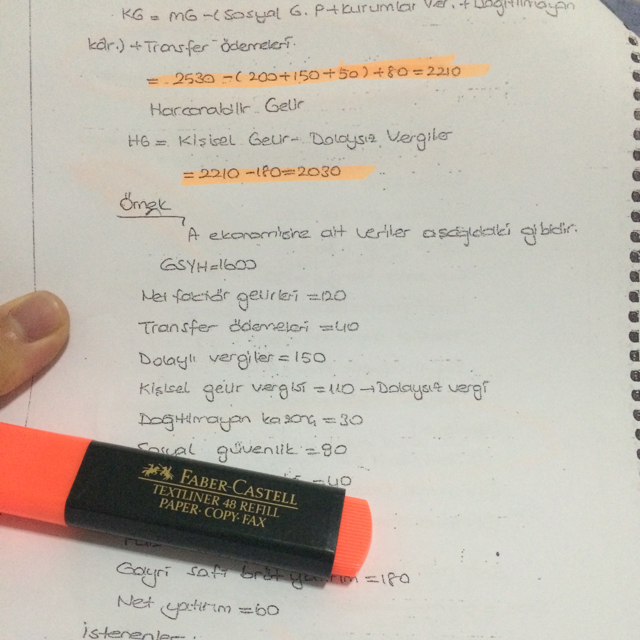 KG = MG - (Sosyal G. P + Kurumlar Ver. + Dağıtılmayan
kâr.) + Transfer Ödemeleri.
= 2530 - (200+150+50) + 80 = 2210
Harcanabilir Gelir
HG = Kişisel Gelir - Dolaysız Vergiler
= 2210 - 180 = 2030
Örnek
A ekonomisine ait veriler aşağıdaki gibidir.
GSYH = 1600
Net faktör gelirleri = 120
Transfer ödemeleri = 40
Dolaylı vergiler = 150
Kişisel gelir vergisi = 110 → Dolaysız vergi
Dağıtılmayan kazanç = 30
Sosyal güvenlik = 90
= 40
FABER-CASTELL
TEXTLINER 48 REFILL
PAPER·COPY·FAX
Gayri safi brüt yatırım = 180
Net yatırım = 60
İstenenler: